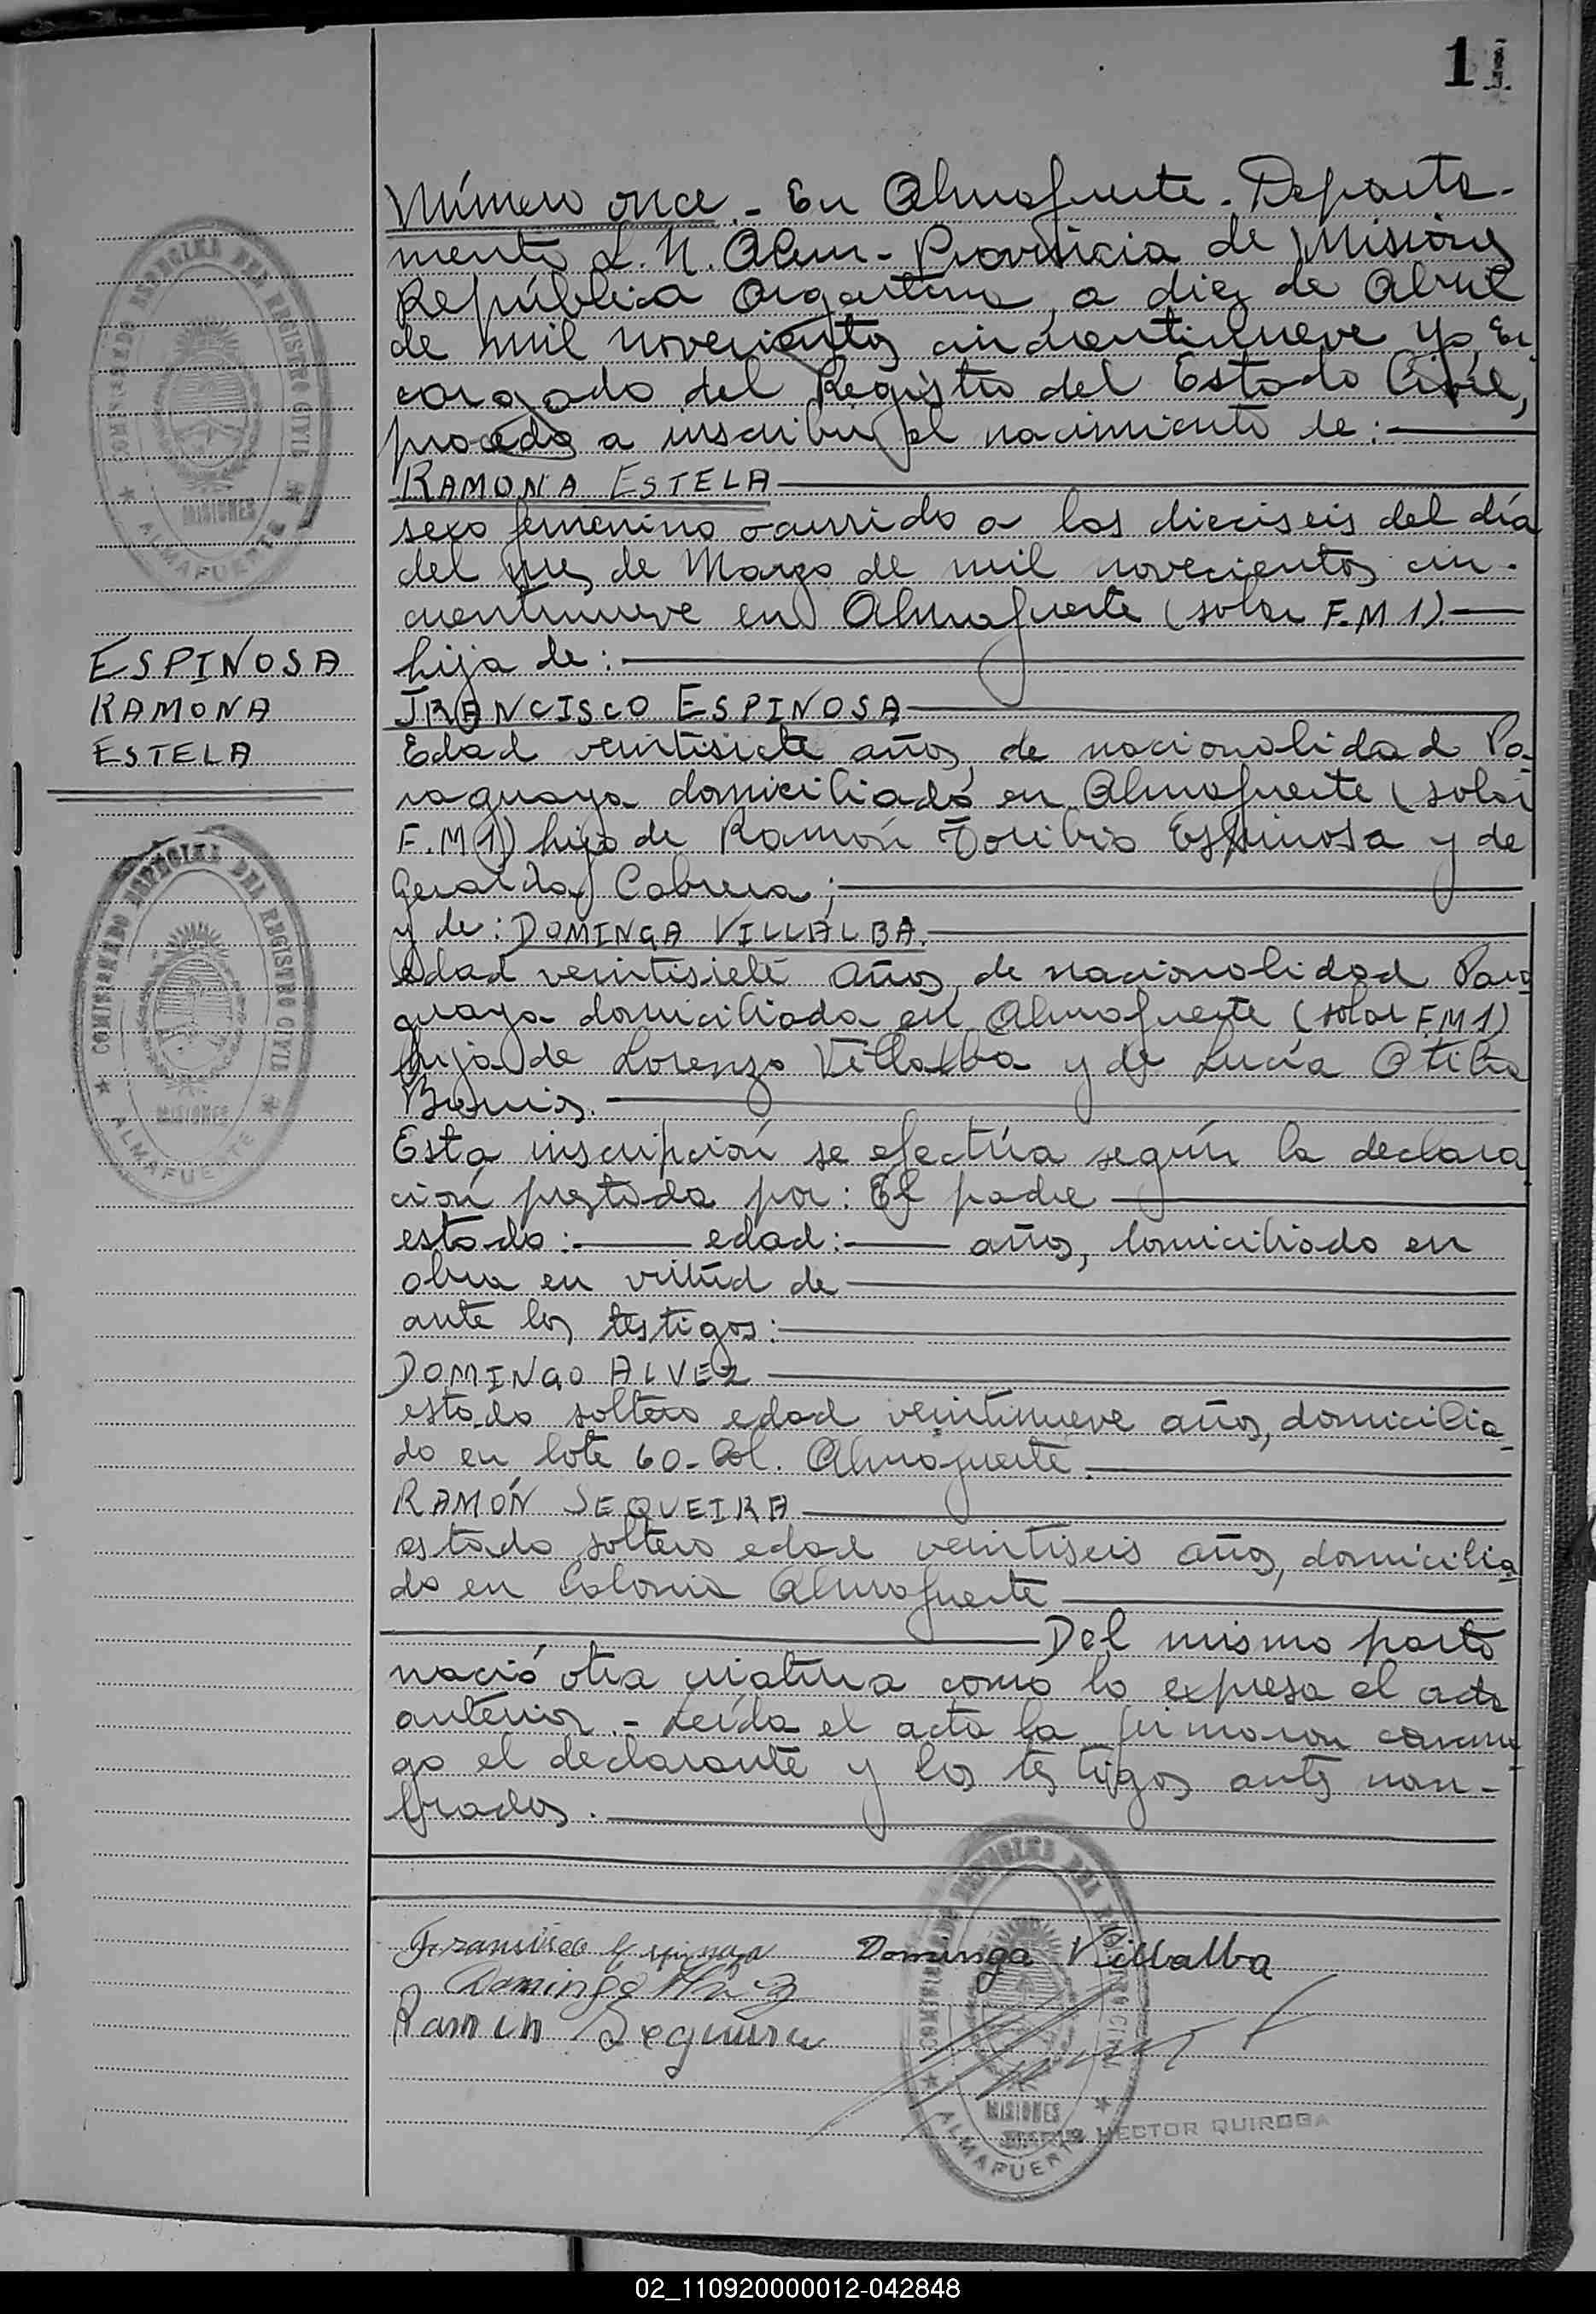 11
Número once.- En Almafuerte - Departa-
mento L. N. Alem - Provincia de Misiones
República Argentina, a diez de Abril
de mil novecientos cincuentinueve yo, En
cargado del Registro del Estado Civil,
procedo a inscribir el nacimiento de:
RAMONA ESTELA
sexo femenino ocurrido a las dieciseis del día
del mes de Marzo de mil novecientos cin-
cuentinueve en Almafuerte (solar F.M 1).
hija de:
FRANCISCO ESPINOSA
Edad veintisiete años, de nacionalidad Pa-
raguaya domiciliado en Almafuerte (solar
F.M 1) hijo de Ramón Toribio Espinosa y de
Geralda Cabrera;
y de: DOMINGA VILLALBA.
edad veintisiete años, de nacionalidad Para
guaya domiciliada en Almafuerte (solar F.M 1)
hija de Lorenzo Villalba y de Lucía Otilia
Esta inscripción se efectúa según la declara
ción prestada por: El padre
estado: edad: años, domiciliado en
obra en virtud de
ante los testigos:
DOMINGO ALVEZ
estado soltero edad veintinueve años, domicilia-
do en lote 60 - Col. Almafuerte.
RAMÓN SEQUEIRA
estado soltero edad veintiseis años, domicilia
do en Colonia Almafuerte
Del mismo parto
nació otra criatura como lo expresa el acta
anterior.- Leída el acta la firmaron conmi
go el declarante y los testigos antes nom-
brados.
ESPINOSA
RAMONA
ESTELA
COMISIONADO ESPECIAL DEL REGISTRO CIVIL
MISIONES
ALMAFUERTE
COMISIONADO ESPECIAL DEL REGISTRO CIVIL
MISIONES
ALMAFUERTE
Francisco Espinosa
Dominga Villalba
Domingo Alvez
Ramon Sequeira
COMISIONADO ESPECIAL DEL REGISTRO CIVIL
MISIONES
ALMAFUERTE
HECTOR QUIROGA
02_110920000012-042848